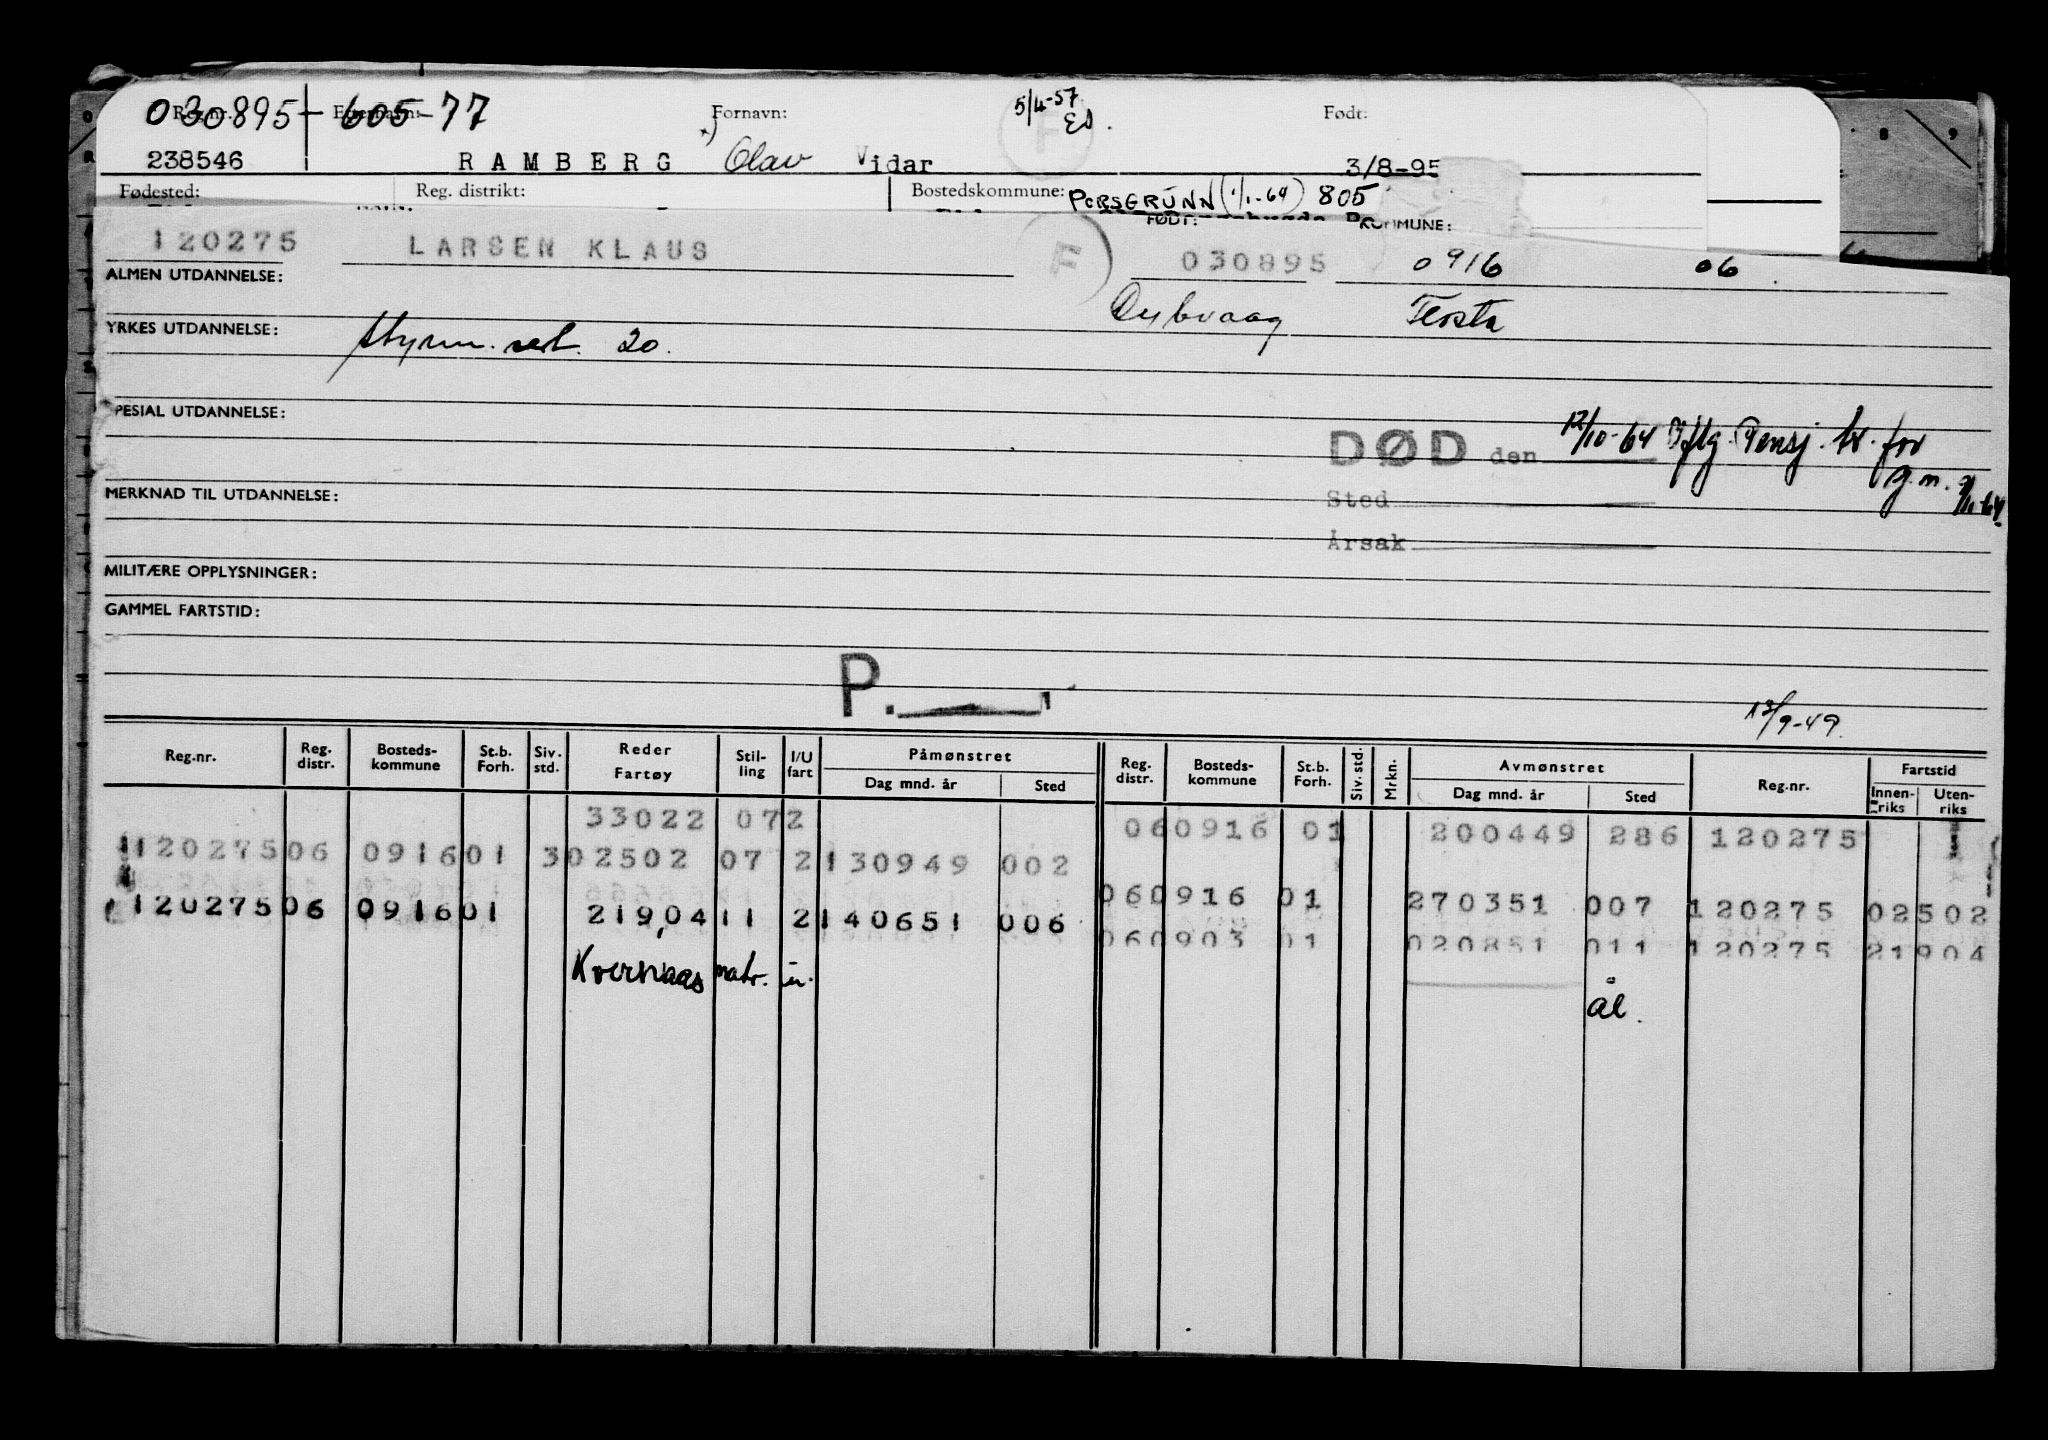 030895-605-77
Reg.nr. Etternavn: Fornavn: 5/4-57 Født:
ES.
238546 RAMBERG x) Olav Vidar F 3/8-95
Fødested: Reg. distrikt: Bostedskommune: PORSGRUNN (1/1-64) 805
FØDT: KOMMUNE:
120275 LARSEN KLAUS F 030895 0916 06
ALMEN UTDANNELSE:
Dybvaag Tersta
YRKES UTDANNELSE: styrm. sert. 20.
SPESIAL UTDANNELSE:
DØD den 12/10-64 Iflg. Pensj. tr. for
g.m.
MERKNAD TIL UTDANNELSE:
Sted
Årsak
MILITÆRE OPPLYSNINGER:
GAMMEL FARTSTID:
P.
13/9-49
Reg.nr. Reg. distr. Bosteds- kommune St.b. Forh. Siv. std. Reder Fartøy Stil- ling I/U fart Påmønstret Dag mnd. år Sted Reg. distr. Bosteds- kommune St.b. Forh. Siv. std. Mrkn. Avmønstret Dag mnd. år Sted Reg.nr. Fartstid Innen- riks Uten- riks
33022 07 2 06 0916 01 200449 286 120275
120275 06 0916 01 3 02502 07 2 130949 002
06 0916 01 270351 007 120275 02502
120275 06 0916 01 21904 11 2 140651 006
06 0903 01 020851 011 120275 21904
Kvernaas matr. u.
ål.